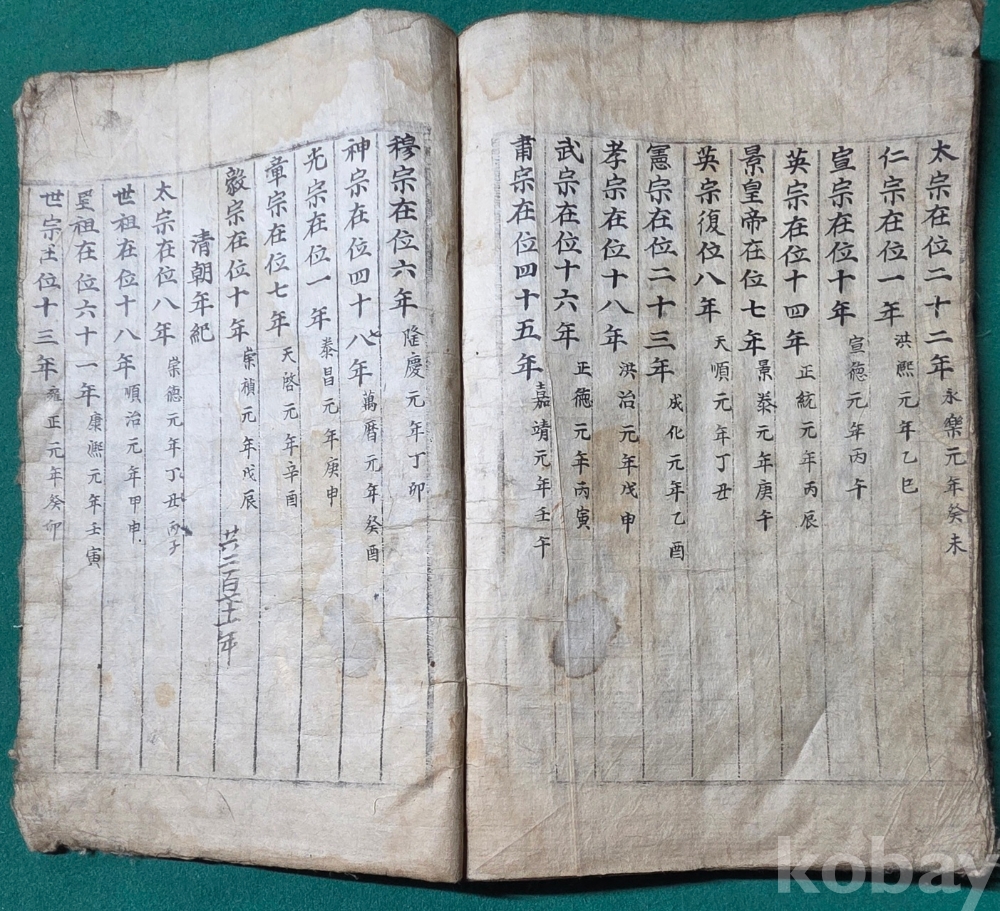 太宗在位二十二年 永樂元年癸未
仁宗在位一年 洪熙元年乙巳
宣宗在位十年 宣德元年丙午
英宗在位十四年 正統元年丙辰
景皇帝在位七年 景泰元年庚午
英宗復位八年 天順元年丁丑
憲宗在位二十三年 成化元年乙酉
孝宗在位十八年 洪治元年戊申
武宗在位十六年 正德元年丙寅
肅宗在位四十五年 嘉靖元年壬午
穆宗在位六年 隆慶元年丁卯
神宗在位四十八年 萬曆元年癸酉
光宗在位一年 泰昌元年庚申
章宗在位七年 天啓元年辛酉
毅宗在位十年 崇禎元年戊辰 共二百年
清朝年紀
太宗在位八年 崇德元年丁丑丙子
世祖在位十八年 順治元年甲申
聖祖在位六十一年 康熙元年壬寅
世宗在位十三年 雍正元年癸卯
kobay